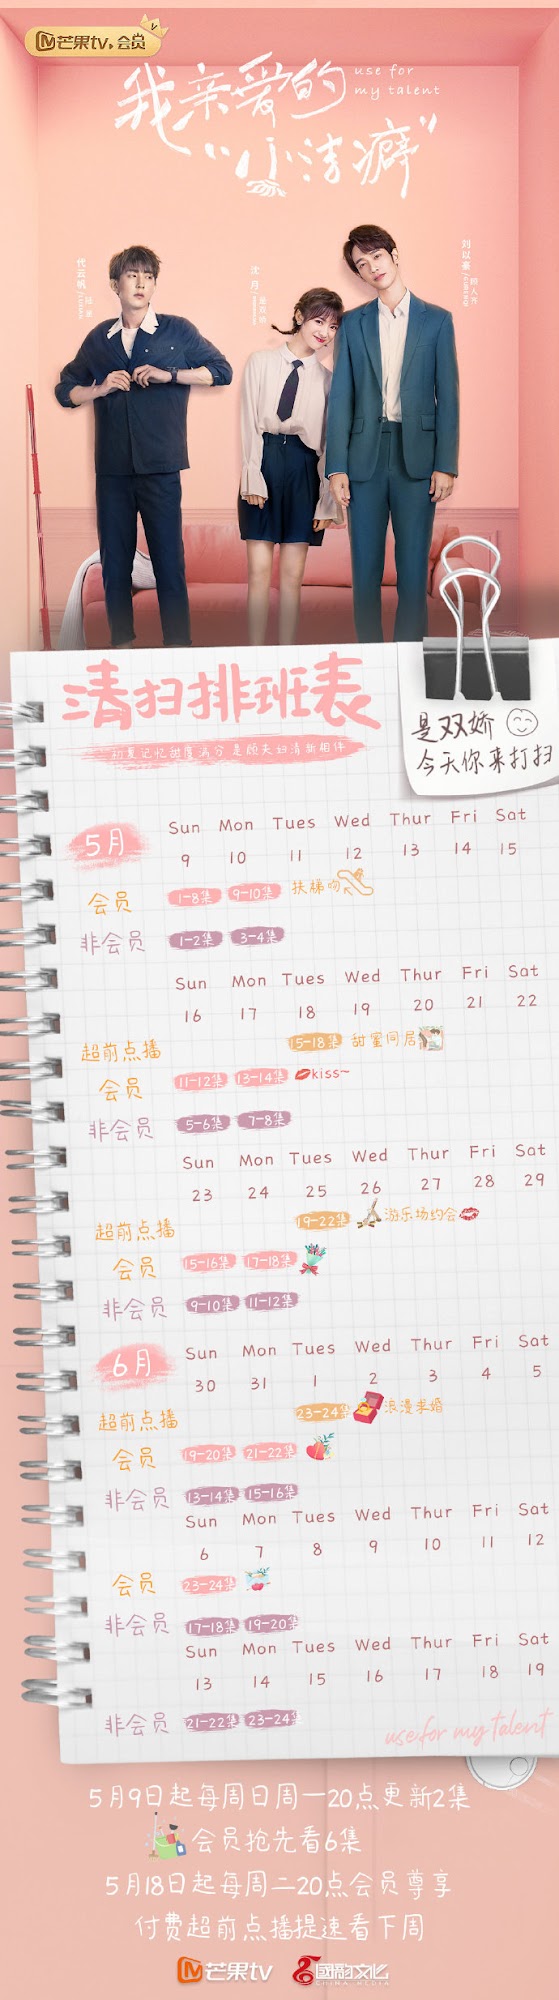 芒果tv·会员
我亲爱的
use for
my talent
“小洁癖”
代云帆
沈月
刘以豪
顾人齐
清扫排班表
是双娇
今天你来打扫
5月
Sun Mon Tues Wed Thur Fri Sat
9 10 11 12 13 14 15
会员 1-8集 9-10集 扶梯吻
非会员 1-2集 3-4集
Sun Mon Tues Wed Thur Fri Sat
16 17 18 19 20 21 22
超前点播 15-18集 甜蜜同居
会员 11-12集 13-14集 kiss~
非会员 5-6集 7-8集
Sun Mon Tues Wed Thur Fri Sat
23 24 25 26 27 28 29
超前点播 19-22集 游乐场约会
会员 15-16集 17-18集
非会员 9-10集 11-12集
6月
Sun Mon Tues Wed Thur Fri Sat
30 31 1 2 3 4 5
超前点播 23-24集 浪漫求婚
会员 19-20集 21-22集
非会员 13-14集 15-16集
Sun Mon Tues Wed Thur Fri Sat
6 7 8 9 10 11 12
会员 23-24集
非会员 17-18集 19-20集
Sun Mon Tues Wed Thur Fri Sat
13 14 15 16 17 18 19
非会员 21-22集 23-24集
use for my talent
5月9日起每周日周一20点更新2集
会员抢先看6集
5月18日起每周二20点会员尊享
付费超前点播提速看下周
芒果tv 國韵文化
CHINA MEDIA